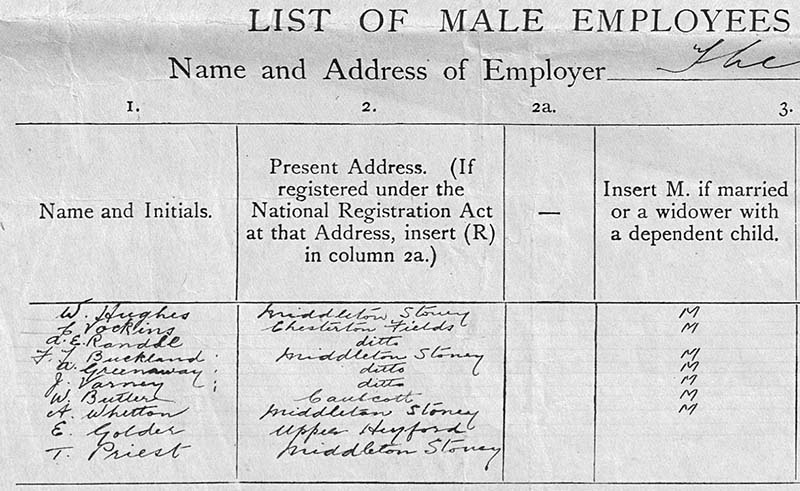 LIST OF MALE EMPLOYEES
Name and Address of Employer The
1. 2. 2a. 3.
Name and Initials.
Present Address. (If
registered under the
National Registration Act
at that Address, insert (R)
in column 2a.)
—
Insert M. if married
or a widower with
a dependent child.
W. Hughes Middleton Stoney M
C. Vockins Chesterton Fields M
A. E. Randle ditto
F. J. Buckland Middleton Stoney M
A. Greenaway ditto M
J. Varney ditto M
W. Butler Caulcott M
A. Whetton Middleton Stoney M
E. Golder Upper Heyford
T. Priest Middleton Stoney